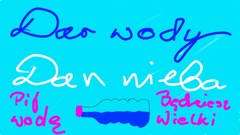 Dar wody
Dan nieba
Pij wodę
Będziesz wielki